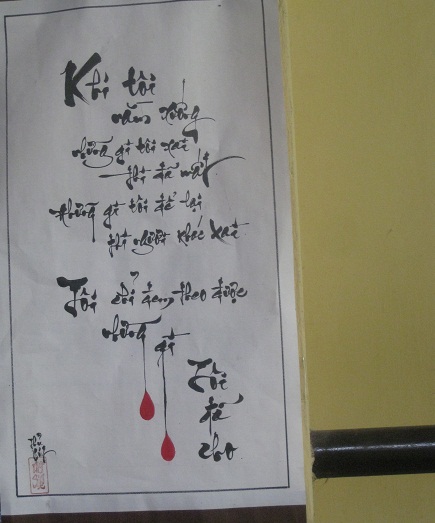 Khi tôi
nằm xuống
những gì tôi xài
thì đã mất
những gì tôi để lại
thì người khác xài
Tôi chỉ đem theo được
những gì
Tôi
đã
cho